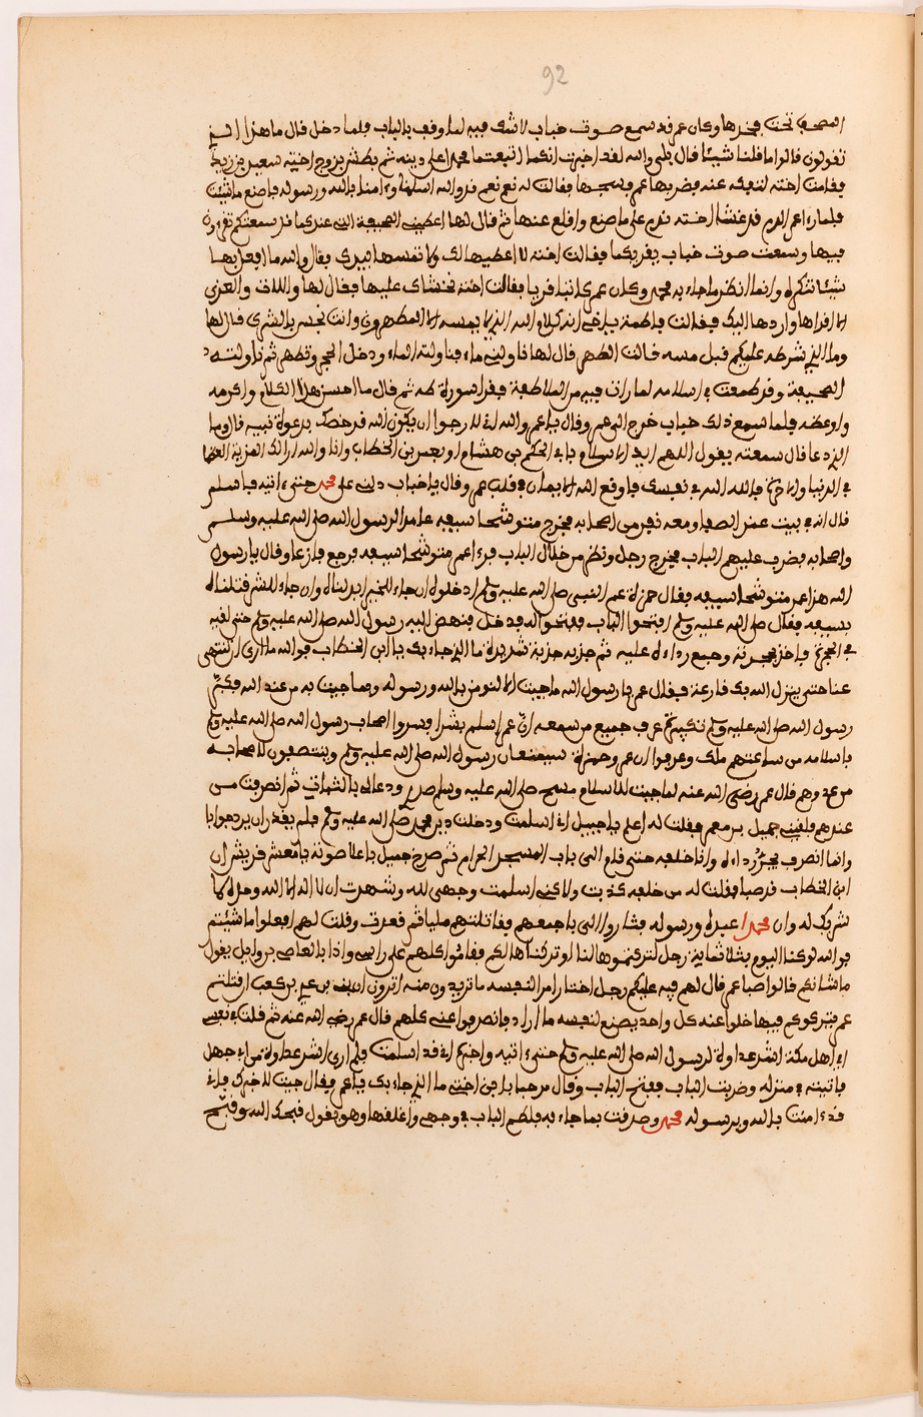 92
المصحف تحت فخذها وكان عمر قد سمع صوت خباب لا شك فيه لما وقف بالباب فلما دخل قال ما هذا الذي
تقولون قالوا ما قلنا شيئا قال بلى والله لقد اخبرت انكما اتبعتما محمدا على دينه ثم بطش بزوج اخته سعيد بن زيد
فقامت اخته لتكفه عنه فضربها عمر فشجها فقالت له نعم نعم قد والله اسلمنا وءامنا بالله ورسوله فاصنع ما شئت
فلما رءا عمر الدم قد غشا اخته ندم على ما صنع واقلع عنها ثم قال لها اعطيني الصحيفة التي عندكما قد سمعتكم تقرءون
فيها وسمعت صوت خباب يقريكما فقالت اخته لا اعطيها لك ولا تمسها بيدك فقال والله ما افعل بها
شيئا تكره وانما انظر ما جاء به محمد وكان عمر كاتبا قريا فقالت اخته نخشاك عليها فقال لها واللات والعزى
الا اقراها واردها اليك فقالت فاطمة يا اخي انه كلام الله الذي لا يمسه الا المطهرون وانت نجس بالشرك قال لها
وما الذي شرطه عليكم قبل مسه قالت الطهر قال لها ناوليني ماء فناولته الماء ودخل الحجر وتطهر ثم ناولته
الصحيفة وقد طمعت في اسلامه لما رات فيه من الملاطفة فقرا سورة طه ثم قال ما احسن هذا الكلام واكرمه
واوعظه فلما سمع ذلك خباب خرج الى عمر وقال يا عمر والله اني لارجوا ان يكون الله قد خصك بدعوة نبيه قال وما
الذي دعا قال سمعته يقول اللهم ايد الاسلام بابي الحكم بن هشام او بعمر بن الخطاب وانا والله ارا لك المزية العظما
في الدنيا والاخرة فالله الله في نفسك فاوقع الله الايمان في قلب عمر وقال يا خباب دلني على محمد حتى اتيه فاسلم
قال انه في بيت عند الصفا ومعه نفر من اصحابه فخرج متوشحا سيفه عامدا لرسول الله صلى الله عليه وسلم
واصحابه فضرب عليهم الباب فخرج رجل ونظر من خلال الباب فرءا عمر متوشحا سيفه فرجع فازعا وقال يا رسول
الله هذا عمر متوشحا سيفه فقال حمزة عم النبي صلى الله عليه وسلم ادخلوه ان جاء للخير ابدلناه وان جاء للشر قتلناه
بسيفه فقال صلى الله عليه وسلم افتحوا الباب ففتحوا له فدخل فنهض اليه رسول الله صلى الله عليه وسلم حتى لقيه
في الحجرة فاخذ بحجزته وجمع رداءه عليه ثم جذبه جذبة شديدة ما الذي جاء بك يا ابن الخطاب فوالله ما ارى ان تنتهي
عنا حتى ينزل الله بك قارعة فقال عمر يا رسول الله ما جيت الا لنومن بالله ورسوله وبما جيت به من عند الله فكبر
رسول الله صلى الله عليه وسلم تكبيرة عرف جميع من سمعه ان عمر اسلم بشرا وسروا اصحاب رسول الله صلى الله عليه وسلم
باسلامه من ساعتهم وعرفوا ان عمر وحمزة سيمنعان رسول الله صلى الله عليه وسلم وينتصفون لاصحابه
من عدوهم قال عمر رضي الله عنه لما جيت للاسلام مسح صلى الله عليه وسلم صدري ودعا لي بالثبات ثم انصرفت من
عندهم فلقيني جميل بن معمر فقلت له اعلم يا جميل اني اسلمت ودخلت دين محمد صلى الله عليه وسلم فلم يقدر ان يرد جوابا
وانما انصرف يجر رداءه وانا خلفه حتى قام الى باب المسجد الحرام ثم صرخ جميل باعلا صوته يا معشر قريش ان
ابن الخطاب قد صبا فقلت له من خلفه كذبت ولاكني اسلمت وجهي لله وشهدت ان لا اله الا الله وحده لا
شريك له وان محمدا عبده ورسوله فثاروا الى باجمعهم فقاتلتهم مليا ثم فعرفت وقلت لهم افعلوا ما شيتم
فوالله لو كنا اليوم ثلاثماية رجل لتركتموها لنا او تركناها لكم فقاموا كلهم على راسي واذا بالعاصي بن وايل يقول
ما شانكم قالوا صبا عمر قال لهم فيه عليكم رجل اختار امرا لنفسه ما تريدون منه اترون ان بني عدي بن كعب اقتلتم
عمر يتركوكم فيها خلوا عنه كل واحد يصنع لنفسه ما اراد فانصرفوا عني كلهم قال عمر رضي الله عنه ثم قلت في نفسي
اي اهل مكة اشد عداوة لرسول الله صلى الله عليه وسلم حتى اتيه واخبره اني قد اسلمت فلم ارى اشد عداوة من ابي جهل
فاتيته في منزله وضربت الباب ففتح الباب وقال مرحبا بابن اختي ما الذي جاء بك يا عمر فقال جيت لاخبرك باني
قد ءامنت بالله وبرسوله محمد وصدقت بما جاء به فلطم الباب في وجهي واغلقها وهو يقول قبحك الله وقبح